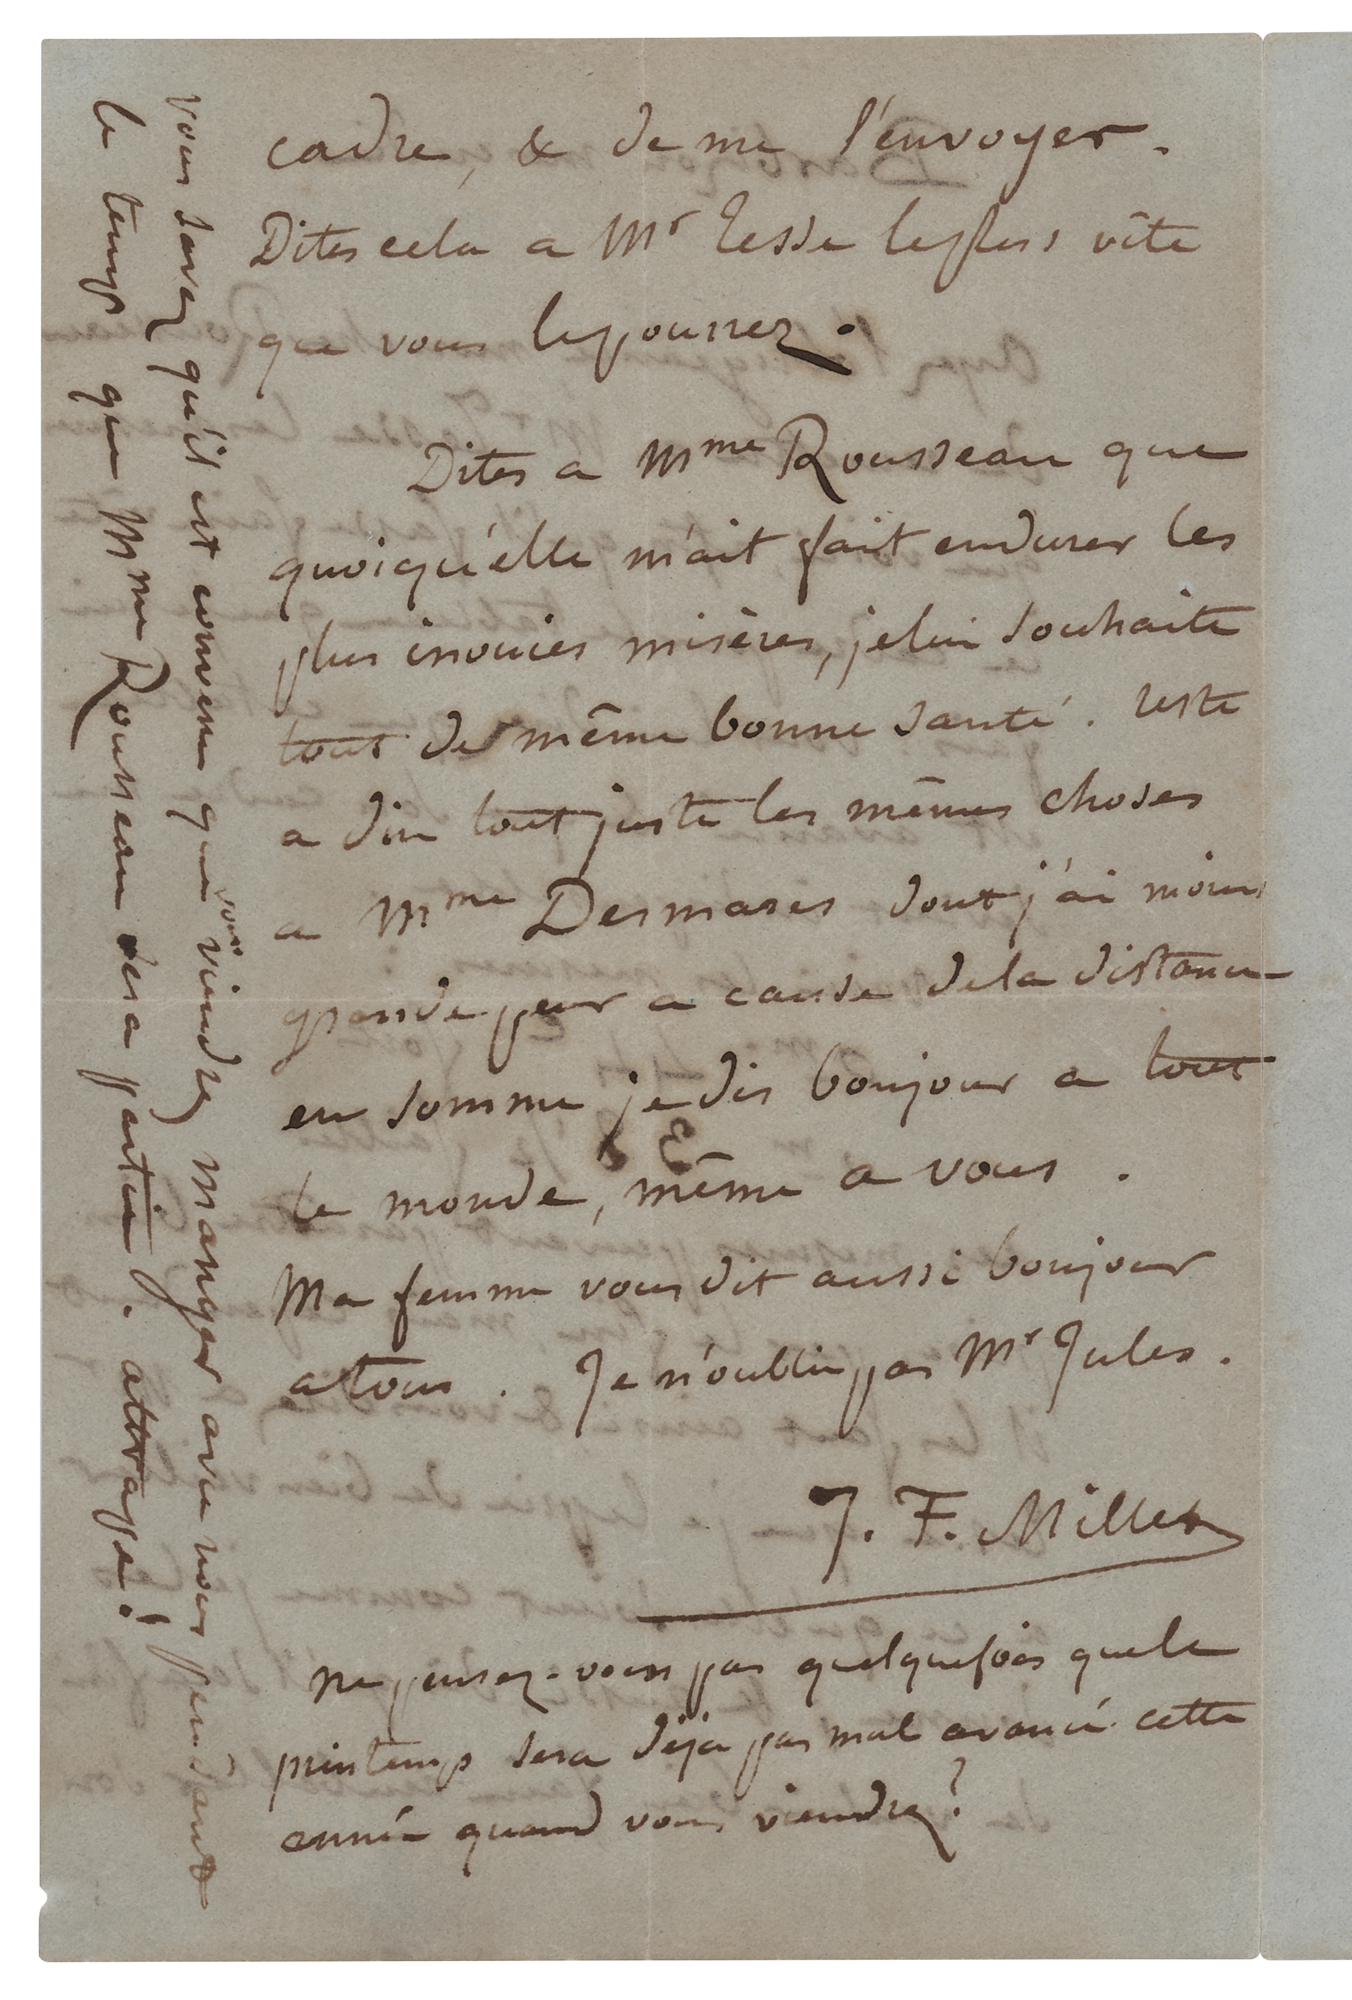 cadre, & de me l'envoyer.
Dites cela a Mr Tesse le plus vîte
que vous le pourrez.
Dites a Mme Rousseau que
quoiqu'elle m'ait fait endurer les
plus inouies misères, je lui souhaite
tout de même bonne santé. reste
a dire tout juste les mêmes choses
a Mme Desmares dont j'ai moins
grande peur a cause de la distance
en somme je dis bonjour a tout
le monde, même a vous.
Ma femme vous dit aussi bonjour
a tous. Je n'oublie pas Mr Jules.
J. F. Millet
ne pensez-vous pas quelquefois que le
printemps sera déja pas mal avancé cette
année quand vous viendrez?
vous savez qu'il est convenu que vous viendrez manger avec nous pendant
le temps que Mme Rousseau sera partie. attrape!